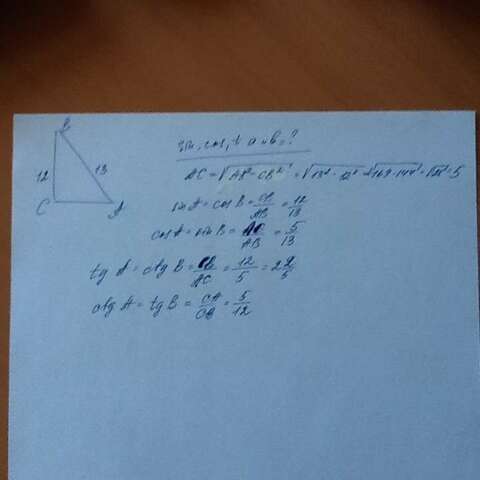 B
12
13
C
A
sin, cos, t a и в = ?
AC = √AB² - CB² = √13² - 12² = √169 - 144 = √25 = 5
sin A = cos B = CB/AB = 12/13
cos A = sin B = AC/AB = 5/13
tg A = ctg B = CB/AC = 12/5 = 2 2/5
ctg A = tg B = CA/CB = 5/12